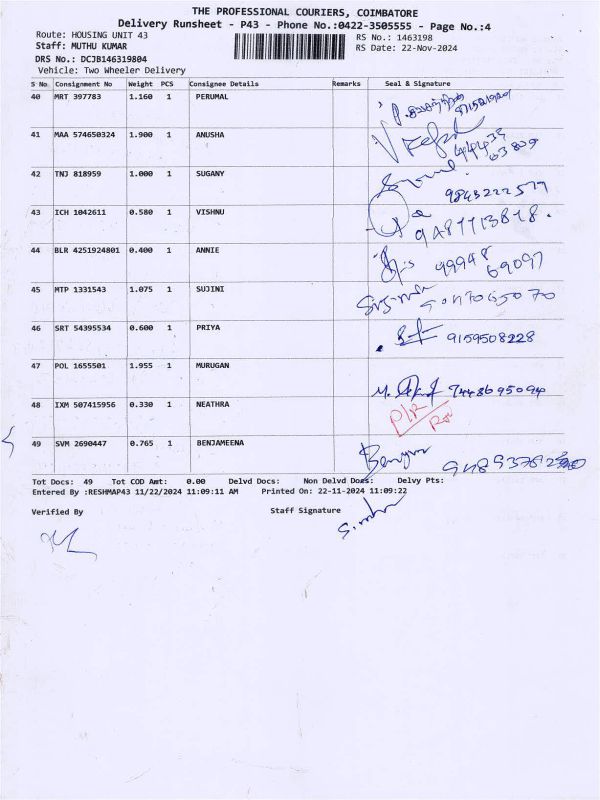 THE PROFESSIONAL COURIERS, COIMBATORE
Delivery Runsheet - P43 - Phone No.:0422-3505555 - Page No.:4
Route: HOUSING UNIT 43
RS No.: 1463198
Staff: MUTHU KUMAR
RS Date: 22-Nov-2024
DRS No.: DCJB146319804
Vehicle: Two Wheeler Delivery
S No. Consignment No Weight PCS Consignee Details Remarks Seal & Signature
40 MRT 397783 1.160 1 PERUMAL
41 MAA 574650324 1.900 1 ANUSHA
42 TNJ 818959 1.000 1 SUGANY
9843222577
43 ICH 1042611 0.580 1 VISHNU
9487113818.
44 BLR 4251924801 0.400 1 ANNIE
99948
69097
45 MTP 1331543 1.075 1 SUJINI
46 SRT 54395534 0.600 1 PRIYA
9159508228
47 POL 1655501 1.955 1 MURUGAN
7448695094
48 IXM 507415956 0.330 1 NEATHRA
49 SVM 2690447 0.765 1 BENJAMEENA
Tot Docs: 49 Tot COD Amt: 0.00 Delvd Docs: Non Delvd Docs: Delvy Pts:
Entered By :RESHMAP43 11/22/2024 11:09:11 AM Printed On: 22-11-2024 11:09:22
Verified By Staff Signature